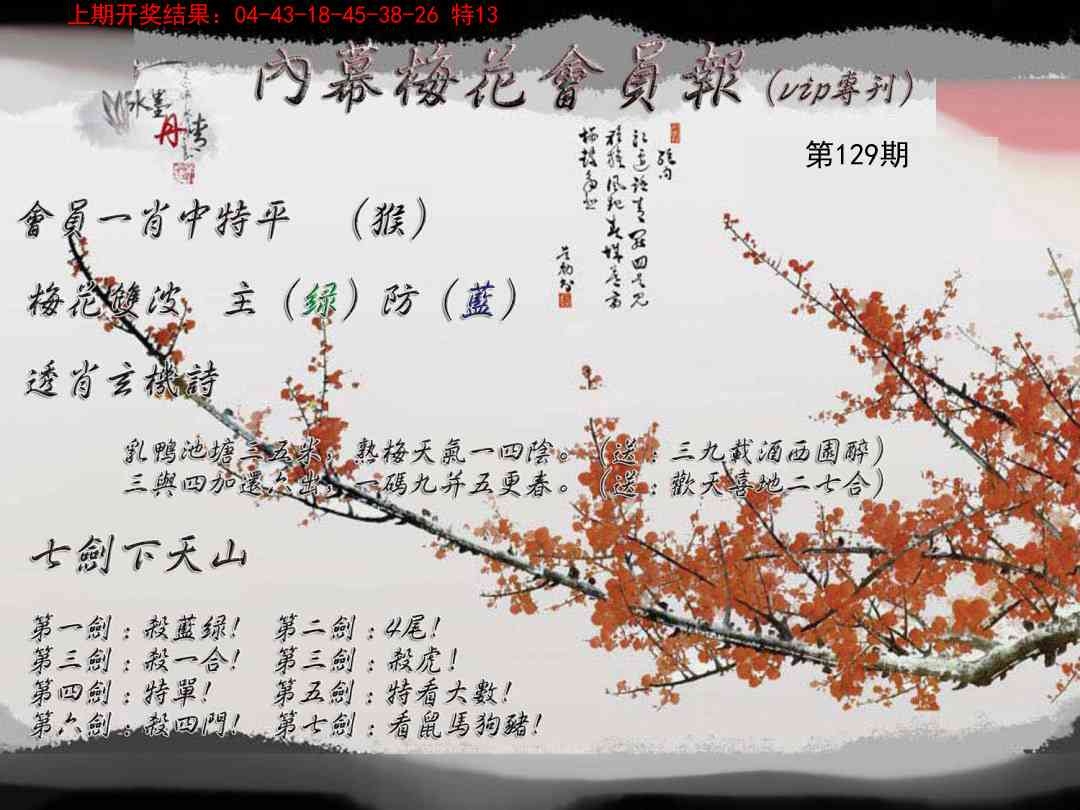 上期开奖结果：04-43-18-45-38-26 特13
內幕梅花會員報（vip專刊）
水墨
丹青
第129期
會員一肖中特平 （猴）
梅花雙波 主（绿）防（藍）
透肖玄機詩
乳鴨池塘三五米，熟梅天氣一四陰。（送：三九載酒西園醉）
三與四加還六出，一碼九并五更春。（送：歡天喜地二七合）
七劍下天山
第一劍：殺藍绿！ 第二劍：4尾！
第三劍：殺一合！ 第三劍：殺虎！
第四劍：特單！ 第五劍：特看大數！
第六劍：殺四門！ 第七劍：看鼠馬狗豬！